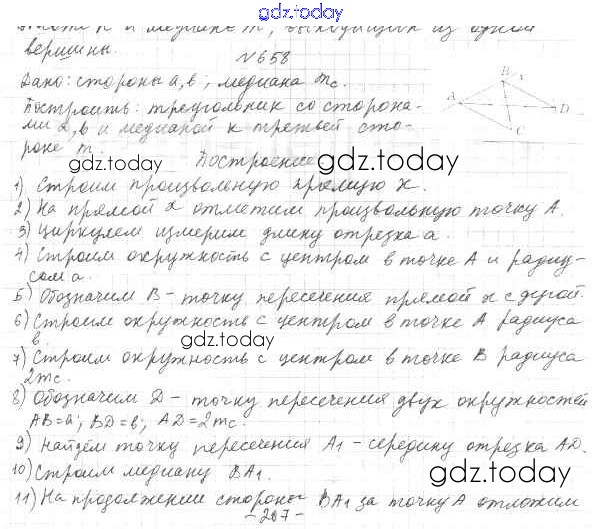 gdz.today
и медиане m, выходящих из одной
вершины.
№658
Дано: стороны a, b; медиана mc.
Построить: треугольник со сторона-
ми a, b и медианой к третьей сто-
роне m.
B x
A D
C
gdz.today
Построение
gdz.today
1) Строим произвольную прямую x.
2) На прямой x отметим произвольную точку A.
3) Циркулем измерим длину отрезка a.
4) Строим окружность с центром в точке A и радиу-
сом a.
gdz.today
gdz.today
5) Обозначим B - точку пересечения прямой x с дугой.
6) Строим окружность с центром в точке A радиуса
b.
gdz.today
7) Строим окружность с центром в точке B радиуса
2mc.
gdz.today
8) Обозначим D - точку пересечения двух окружностей
AB=a; BD=b; AD=2mc.
gdz.today
9) Найдём точку пересечения A1 - середину отрезка AD.
10) Строим медиану BA1.
gdz.today
11) На продолжении стороны BA1 за точку A отложим
-207-
gdz.today